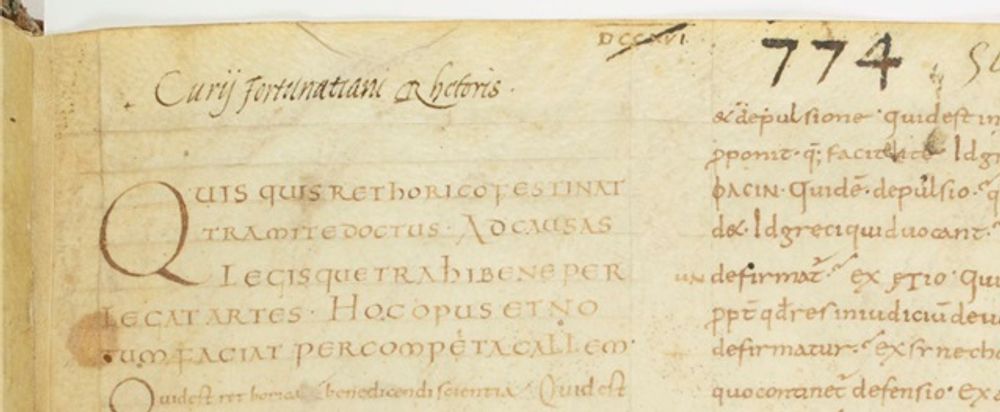 DCCXVI
774
Curij fortunatiani Rhetoris.
QUIS QUIS RETHORICO FESTINAT
TRAMITE DOCTUS· AD CAUSAS
LEGISQUE TRAHI BENE PER
LEGAT ARTES· HOC OPUS ET NO
TUM FACIAT PER COMPETA CALLEM·
Quid est rethorica? benedicendi scientia Quid est
& depulsione· quid est in
pponit· q; facit
ΦACIN· Quid ē· depulsio·
de&· Id greci qui d uocant·
UN defirmat̄ ex
ppt̄ qd res in iudiciū deu
defirmatur·
quo continet defensio· ex